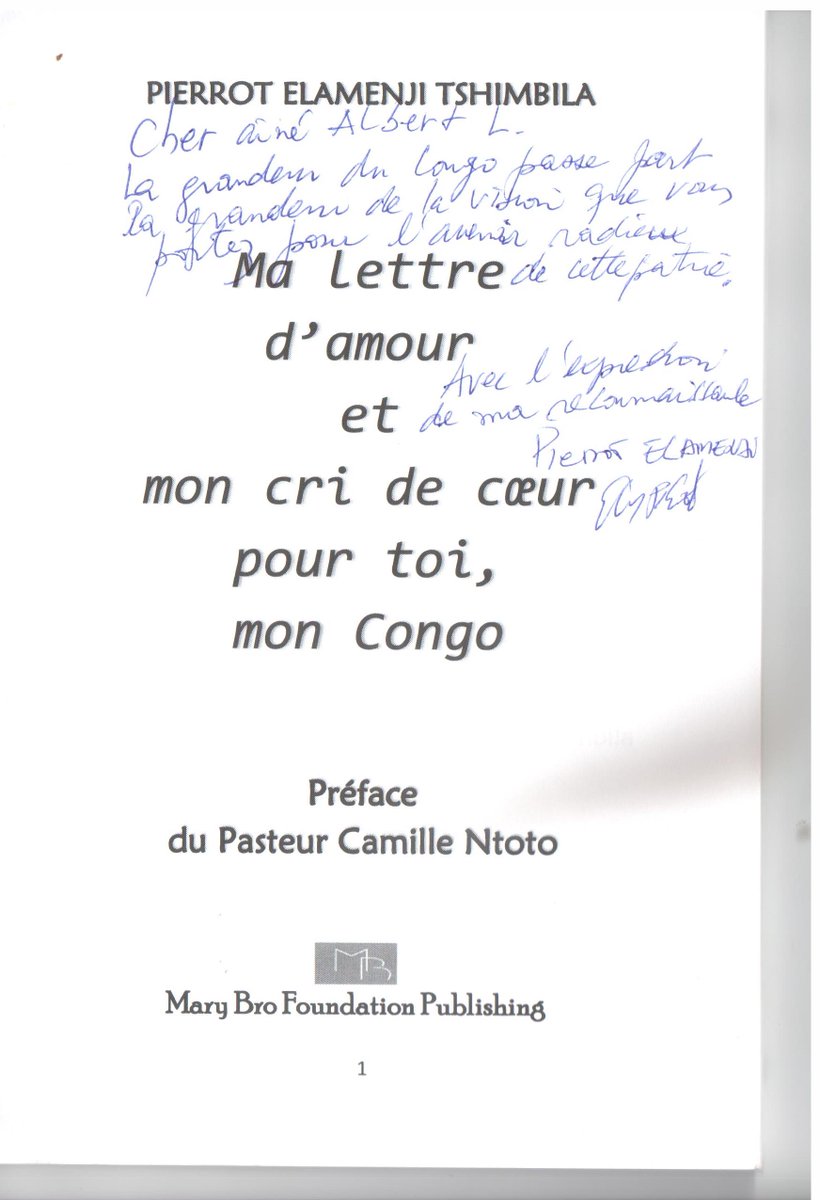 PIERROT ELAMENJI TSHIMBILA
Cher aîné Albert L.
La grandeur du Congo passe part
la grandeur de la vision que vous
portez pour l'avenir radieux
de cette patrie.
Ma lettre
d'amour
et
mon cri de cœur
pour toi,
mon Congo
Avec l'expression
de ma reconnaissance
Pierrot ELAMENJI
Préface
du Pasteur Camille Ntoto
MB
Mary Bro Foundation Publishing
1